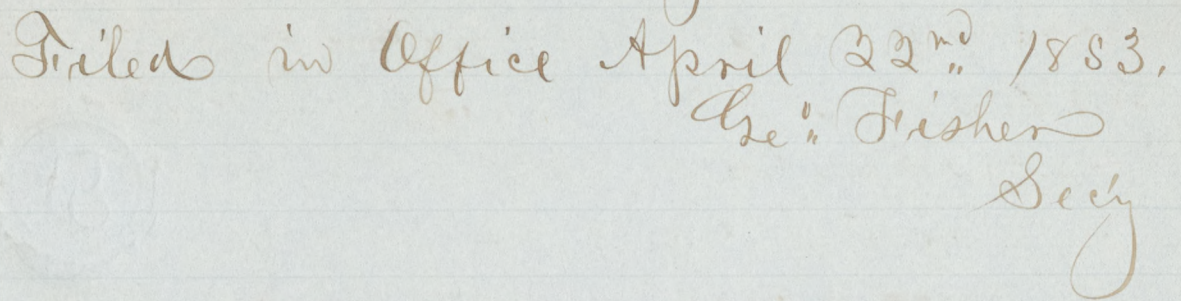 Filed in Office April 22nd 1853.
Geo Fisher
Secy